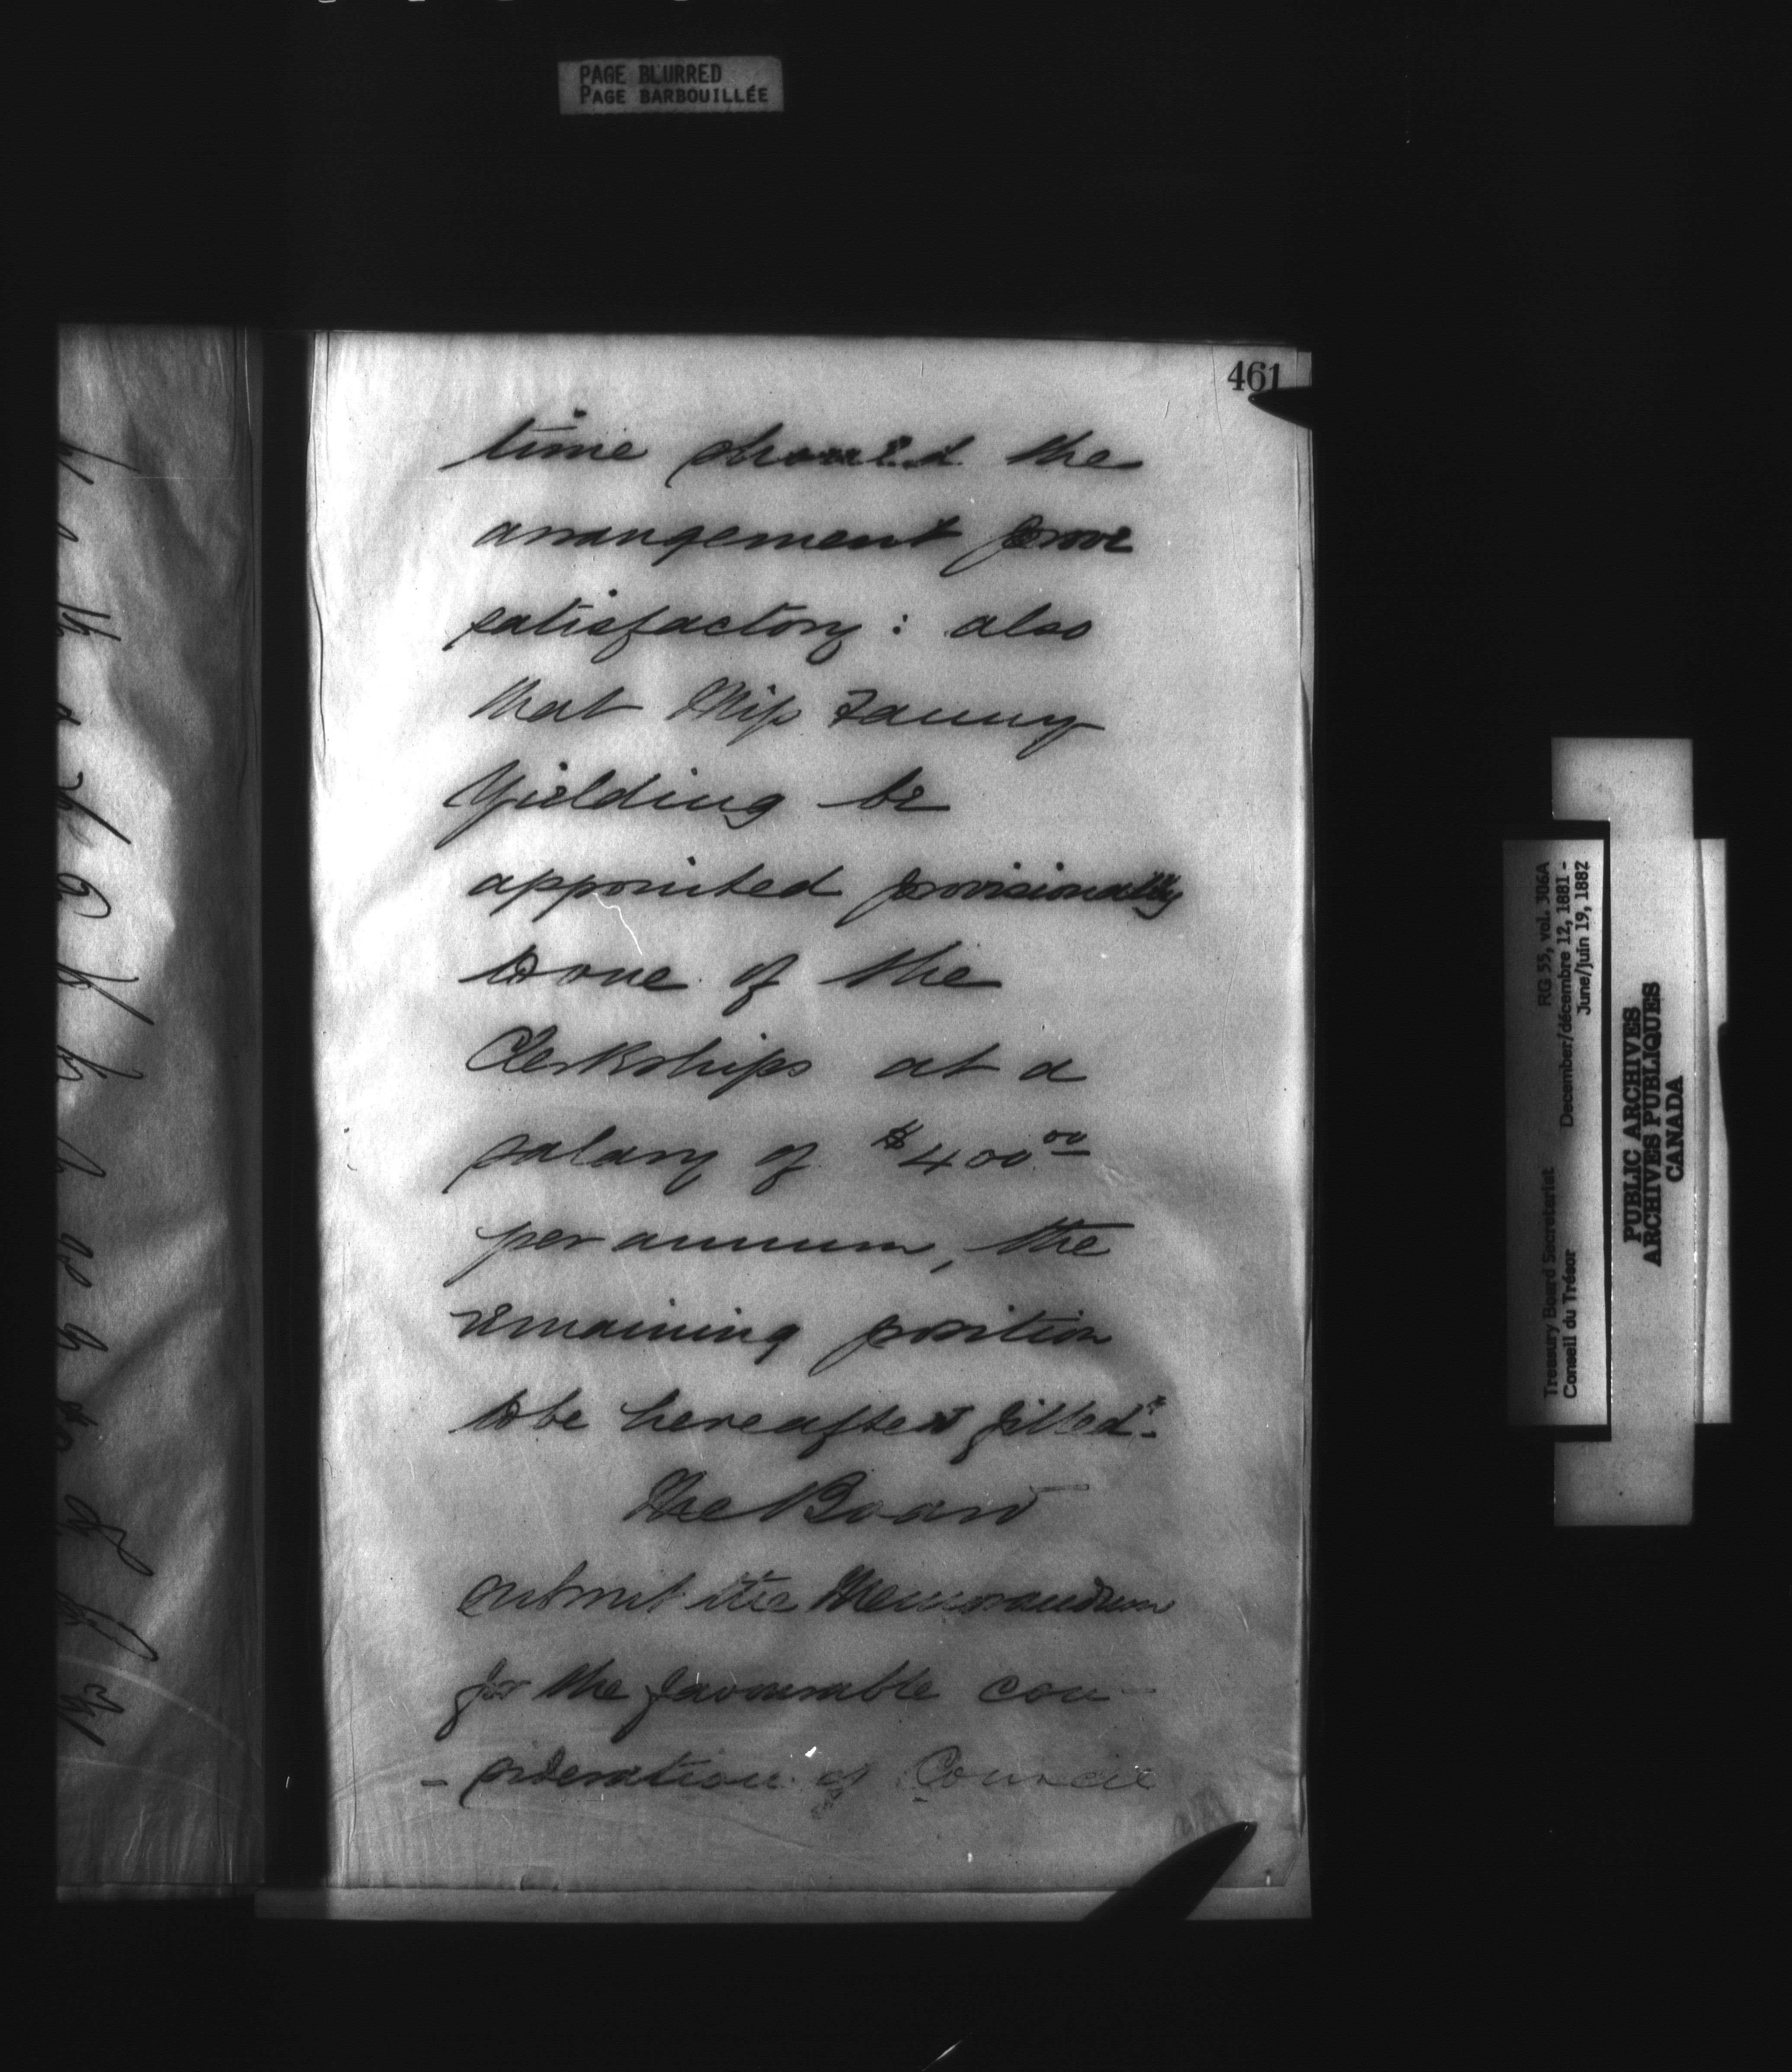 PAGE BLURRED
PAGE BARBOUILLÉE
461
time should the
arrangement prove
satisfactory: also
that Miss Fanny
Yielding be
appointed provisionally
to one of the
Clerkships at a
salary of $400.00
per annum, the
remaining position
to be hereafter filled".
The Board
submit the Memorandum
for the favourable con-
-sideration of Council
Treasury Board Secretariat RG 55, vol. 306A
Conseil du Trésor December/décembre 12, 1881 -
June/juin 19, 1882
PUBLIC ARCHIVES
ARCHIVES PUBLIQUES
CANADA